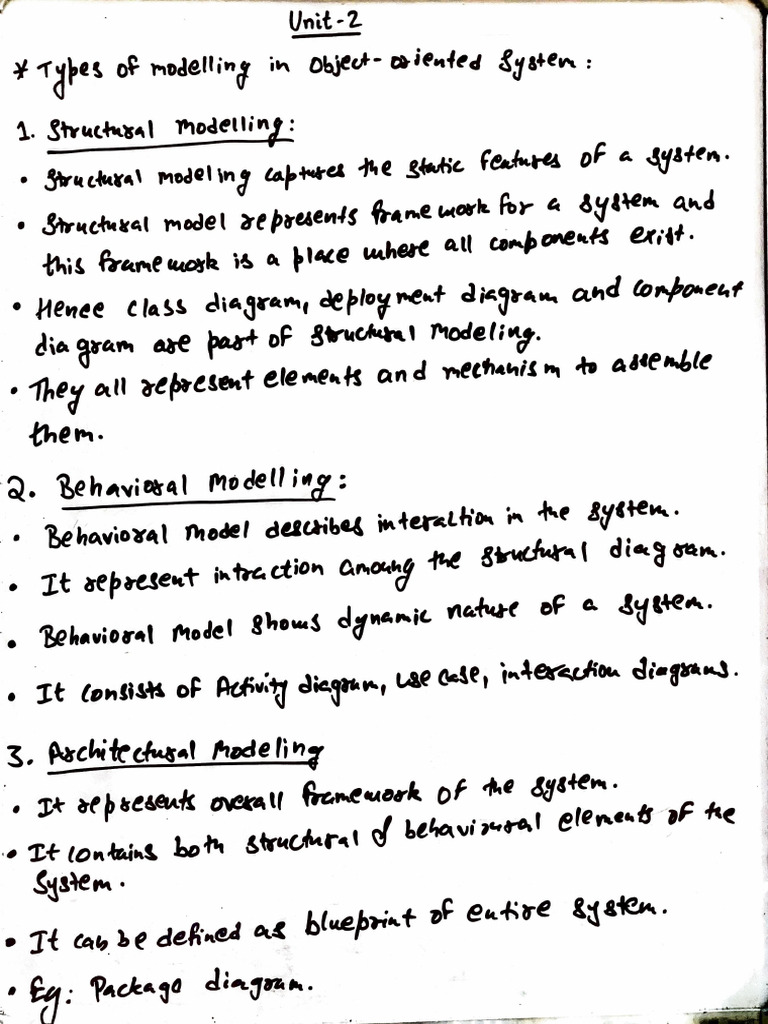 Unit-2
* Types of modelling in Object-oriented System:
1. Structural Modelling:
• Structural modeling captures the static features of a system.
• Structural model represents framework for a system and
this framework is a place where all components exist.
• Hence class diagram, deployment diagram and component
diagram are part of Structural Modeling.
• They all represent elements and mechanism to assemble
them.
2. Behavioral Modelling:
• Behavioral Model describes interaction in the system.
• It represent intraction amoung the structural diagram.
• Behavioral Model shows dynamic nature of a system.
• It consists of Activity diagram, use case, interaction diagrams.
3. Architectural Modeling
• It represents overall framework of the system.
• It contains both structural & behavioural elements of the
System.
• It can be defined as blueprint of entire system.
• Eg: Package diagram.